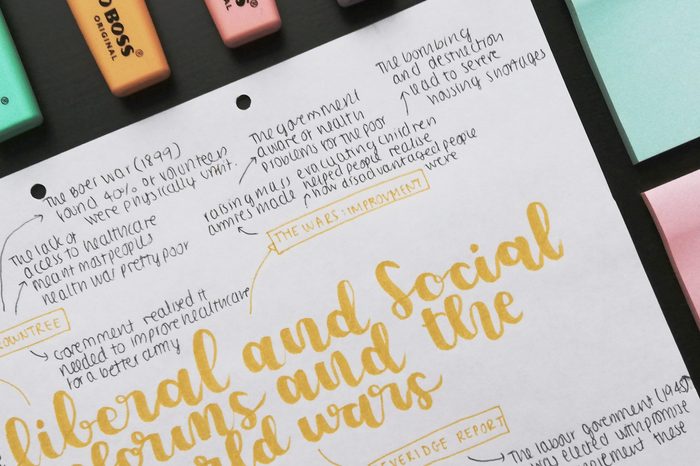 BOSS
ORIGINAL
The Boer War (1899)
found 40% of volunteers
were physically unfit.
The lack of
access to healthcare
meant most peoples
health was pretty poor
Government realised it
needed to improve healthcare
for a better army
The government
aware of health
problems for the poor
raising mass
armies made
evacuating children
helped people realise
how disadvantaged people
were
The bombing
and destruction
lead to severe
housing shortages
THE WARS: IMPROVMENT
OWNTREE
liberal and Social
and the
wars
EVERIDGE REPORT
The labour government (1945)
was elected with promise
these